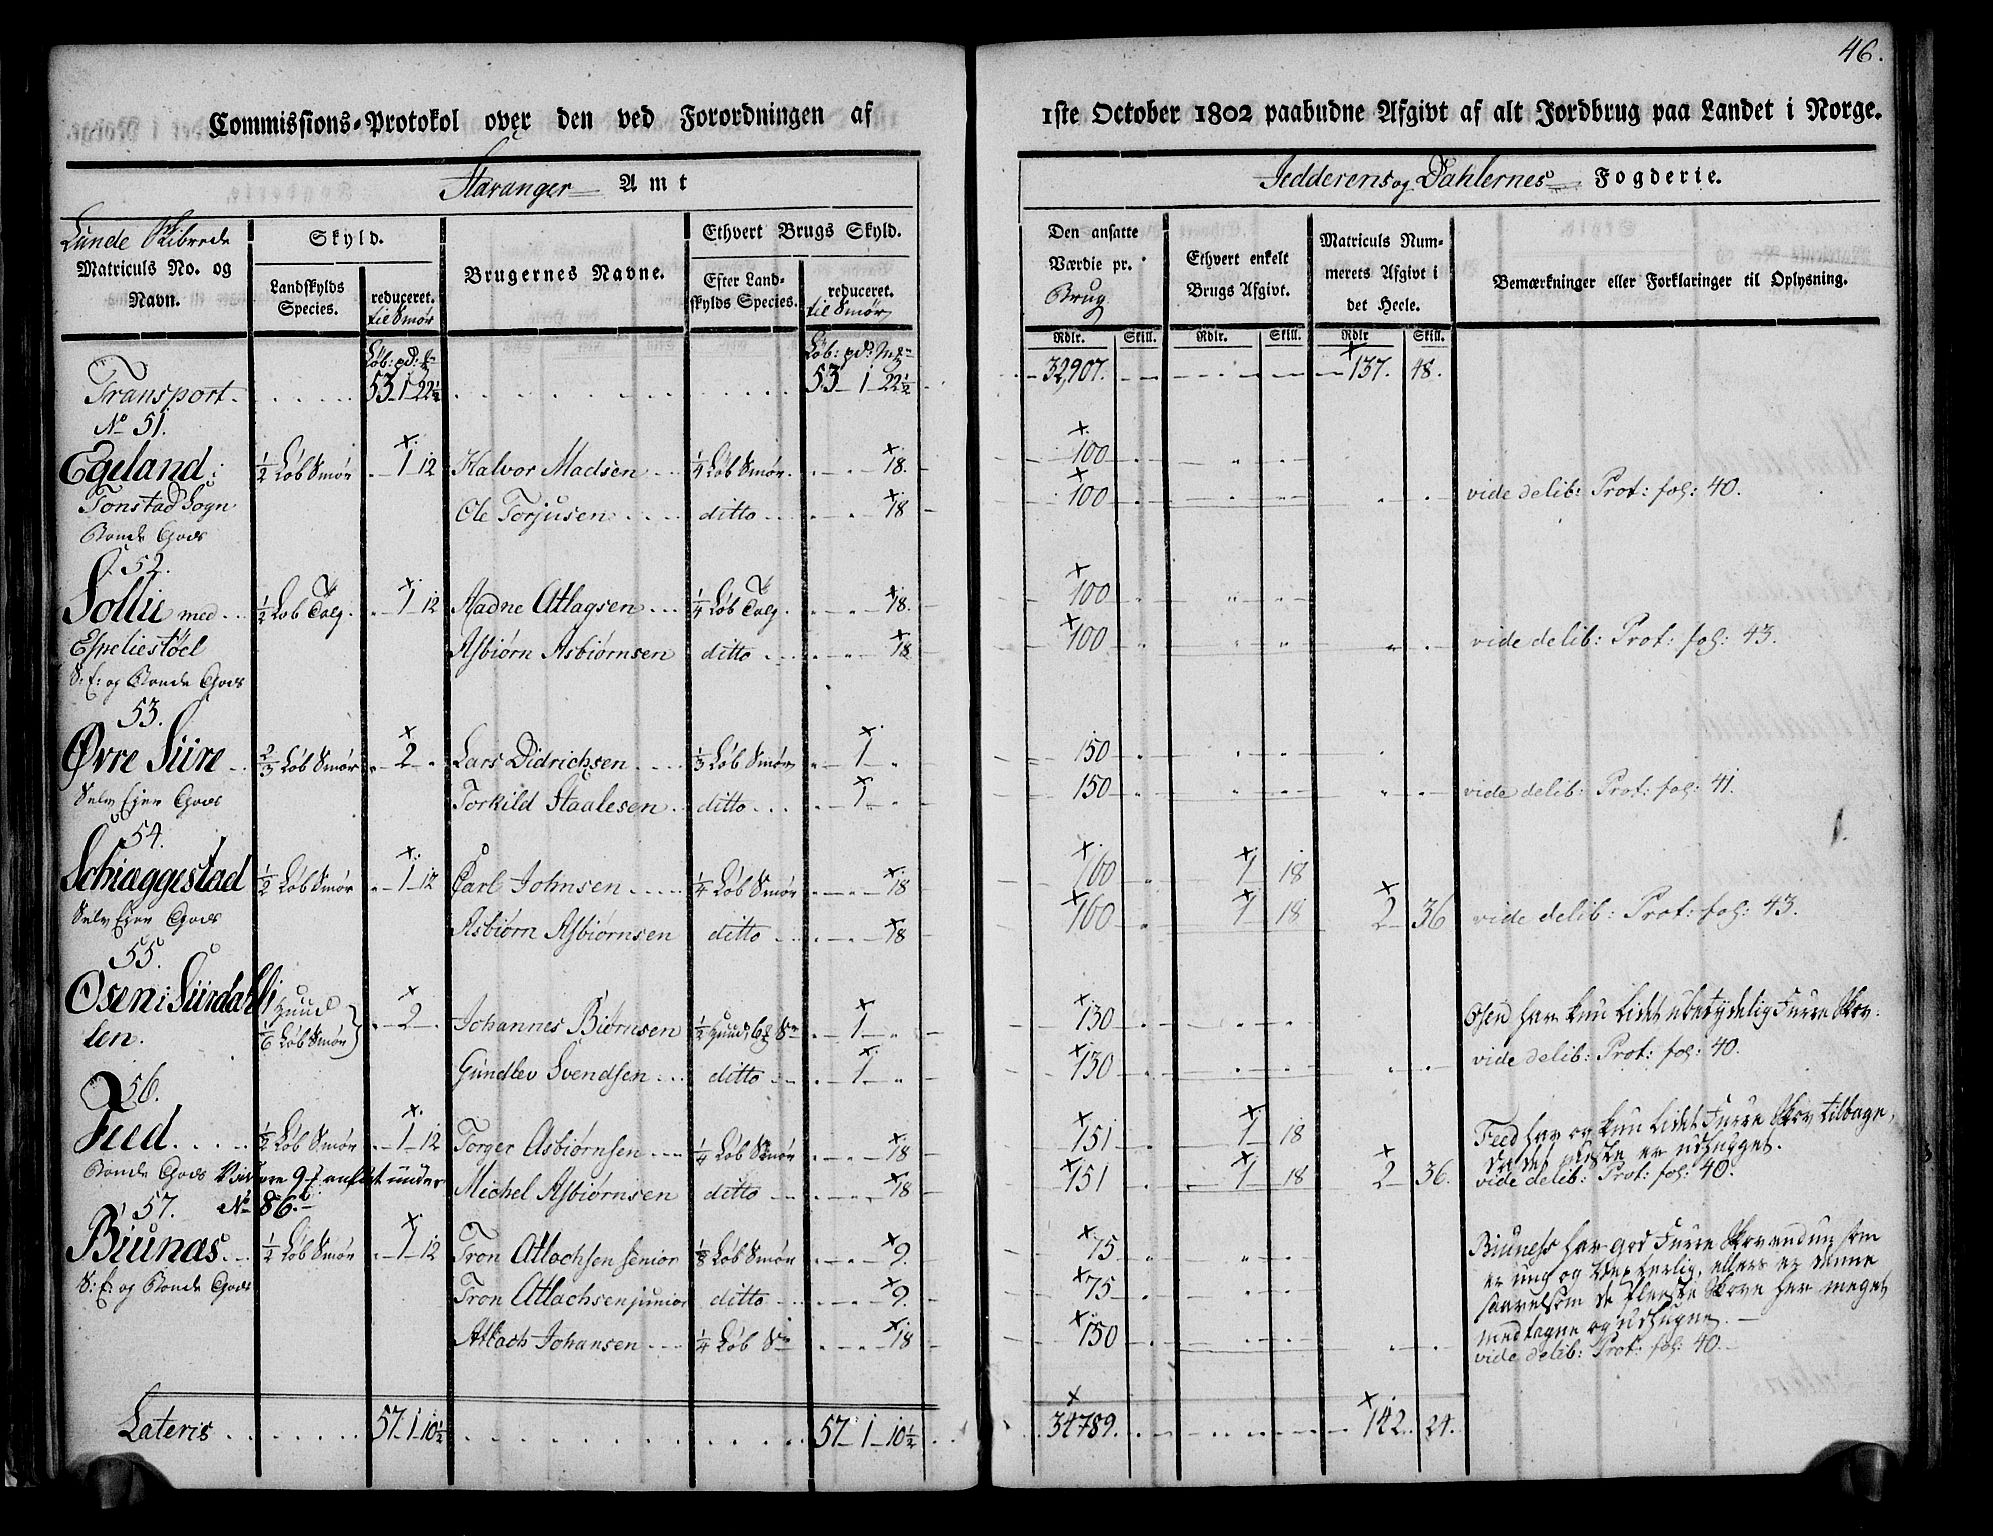 46.
Commissions-Protokol over den ved Forordningen af 1ste October 1802 paabudne Afgivt af alt Jordbrug paa Landet i Norge.
Stavanger Amt
Jedderens og Dahlernes Fogderie.
Lunde Skibrede
Matriculs No. og Navn.
Skyld.
Landskylds Species.
reduceret. til Smør
Brugernes Navne.
Ethvert Brugs Skyld.
Efter Landskylds Species.
reduceret. til Smør
Den ansatte Værdie pr. Brug
Ethvert enkelt Brugs Afgivt.
Matriculs Nummerets Afgivt i det Heele.
Bemærkninger eller Forklaringer til Oplysning.
Rdlr. Skill. Rdlr. Skill. Rdlr Skill.
Løb: pd: Løb: pd:
Transport 53 1 22½ 53 1 22½ 32,907. 137. 48.
No 51.
Egeland ½ Løb Smør 1 12 Halvor Madsen ¼ Løb Smør 18. 100
Tonstad Sogn Ole Torjusen ditto 18 100 vide delib: Prot: fol: 40.
Bonde Gods
52.
Sollie med ½ Løb Talg 1 12 Aadne Atlagsen ¼ Løb Talg. 18. 100
Espeliestøel Asbiørn Asbiørnsen ditto 18 100 vide delib: Prot: fol: 43.
S: E: og Bonde Gods
53.
Øvre Siire ⅔ Løb Smør 2 Lars Didrichsen ⅓ Løb Smør 1 150
Selv Ejer Gods Torkild Staalesen ditto 1 150 vide delib: Prot: fol: 41.
54.
Schiæggestad ½ Løb Smør 1 12 Carl Johnsen ¼ Løb Smør 18 160 1 18
Selv Ejer Gods Asbiørn Asbiørnsen ditto 18 160 1 18 2 36 vide delib: Prot: fol: 43.
55.
Osen i Siirdahlen. 1 Huud ⅙ Løb Smør 2 Johannes Biørnsen ½ Huud 1 130 Osen har kun lidet ubetydelig Furre Skov.
Gundlev Svendsen ditto 1 130 vide delib: Prot: fol: 40.
56.
Feed ½ Løb Smør 1 12 Torger Asbiørnsen ¼ Løb Smør 18 151 1 18 Feed har og kun lidet Furre Skov tilbage, da det meste er udhugget.
Bonde Gods Videre anført under No 86. Michel Asbiørnsen ditto 18 151 1 18 2 36. vide delib: Prot: fol: 40.
57.
Biunas ½ Løb Smør 1 12 Tron Atlachsen senior ⅛ Løb Smør 9. 75 Biuness har god Furre Skov endun som
S: E: og Bonde Gods Tron Atlachsen junior ditto 9. 75 er ung og Vexterlig, ellers er denne saavelsom de fleeste Skove her meget
Atlach Johansen ¼ Løb Sm 18 150 medtagne og udhugne.
vide delib: Prot: fol: 40.
Lateris 57 1 10½ 57 1 10½ 34789. 142. 24.